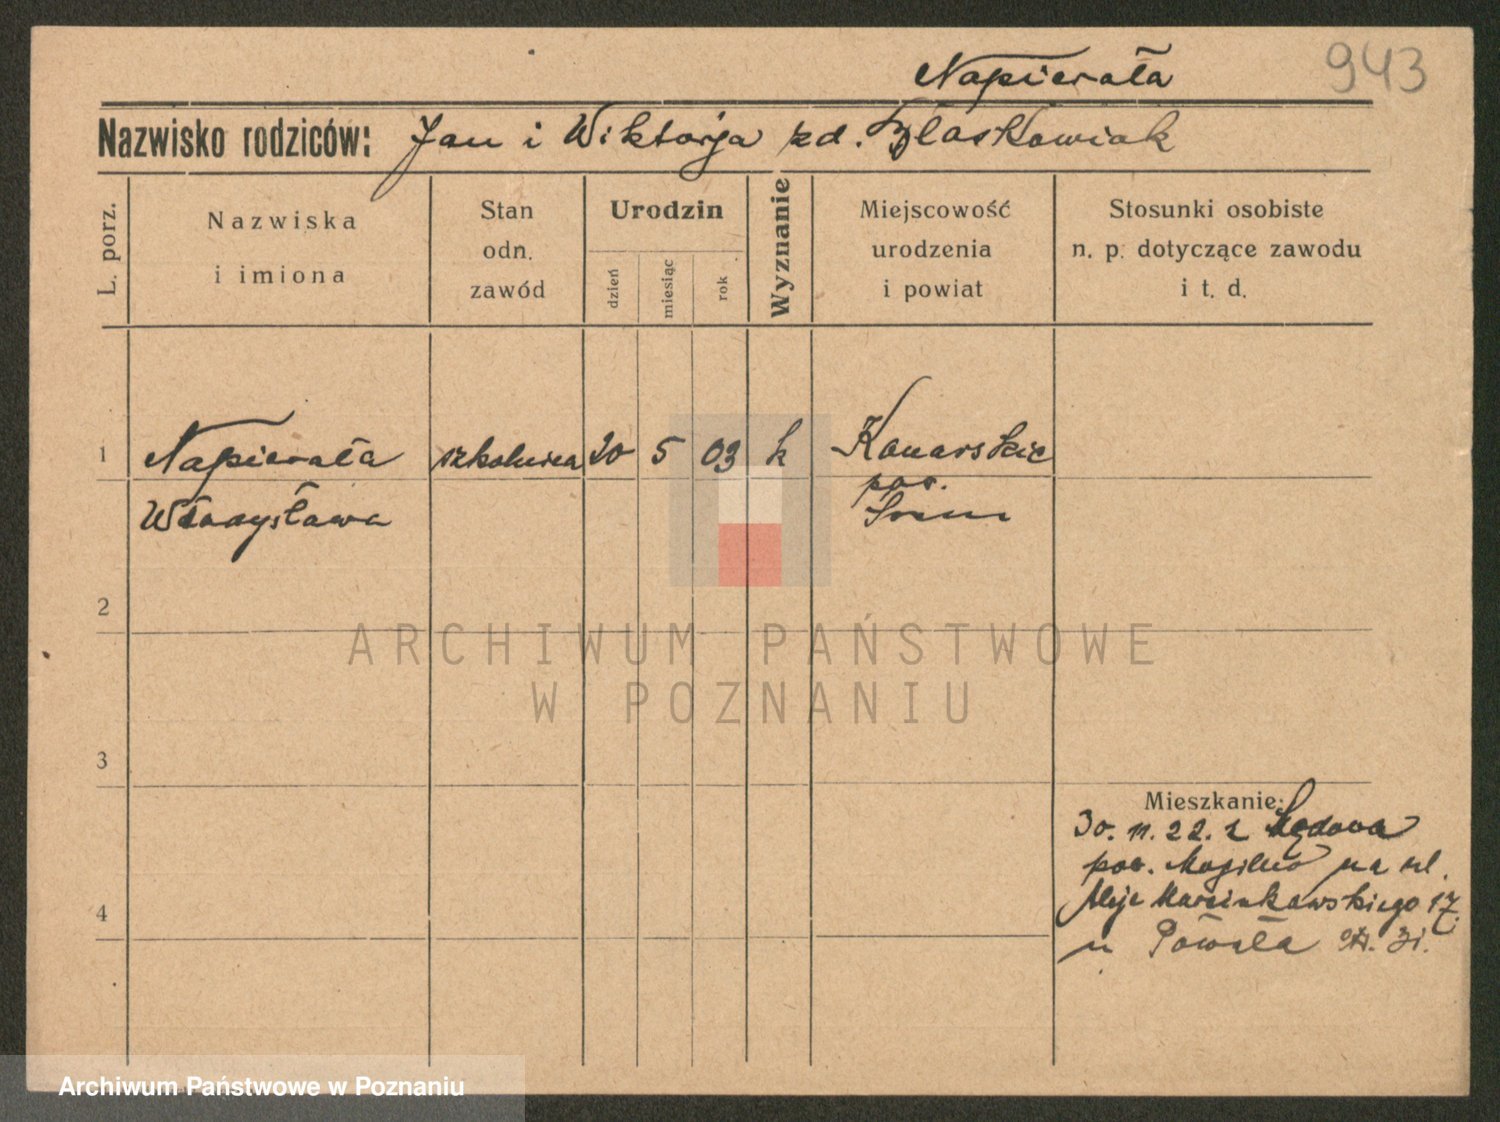 Napierała
943
Nazwisko rodziców: Jan i Wiktorja zd. Błaskowiak
L. porz.
Nazwiska
i imiona
Stan
odn.
zawód
Urodzin
dzień
miesiąc
rok
Wyznanie
Miejscowość
urodzenia
i powiat
Stosunki osobiste
n. p. dotyczące zawodu
i t. d.
1 Napierała 20 5 03 k Konarskie
pow.
Władysława Śrem
2
ARCHIWUM PAŃSTWOWE
W POZNANIU
3
Mieszkanie:
30. 11. 22. z
pow. Mogilno na ul.
Aleje Marcinkowskiego 17.
4
u
Archiwum Państwowe w Poznaniu